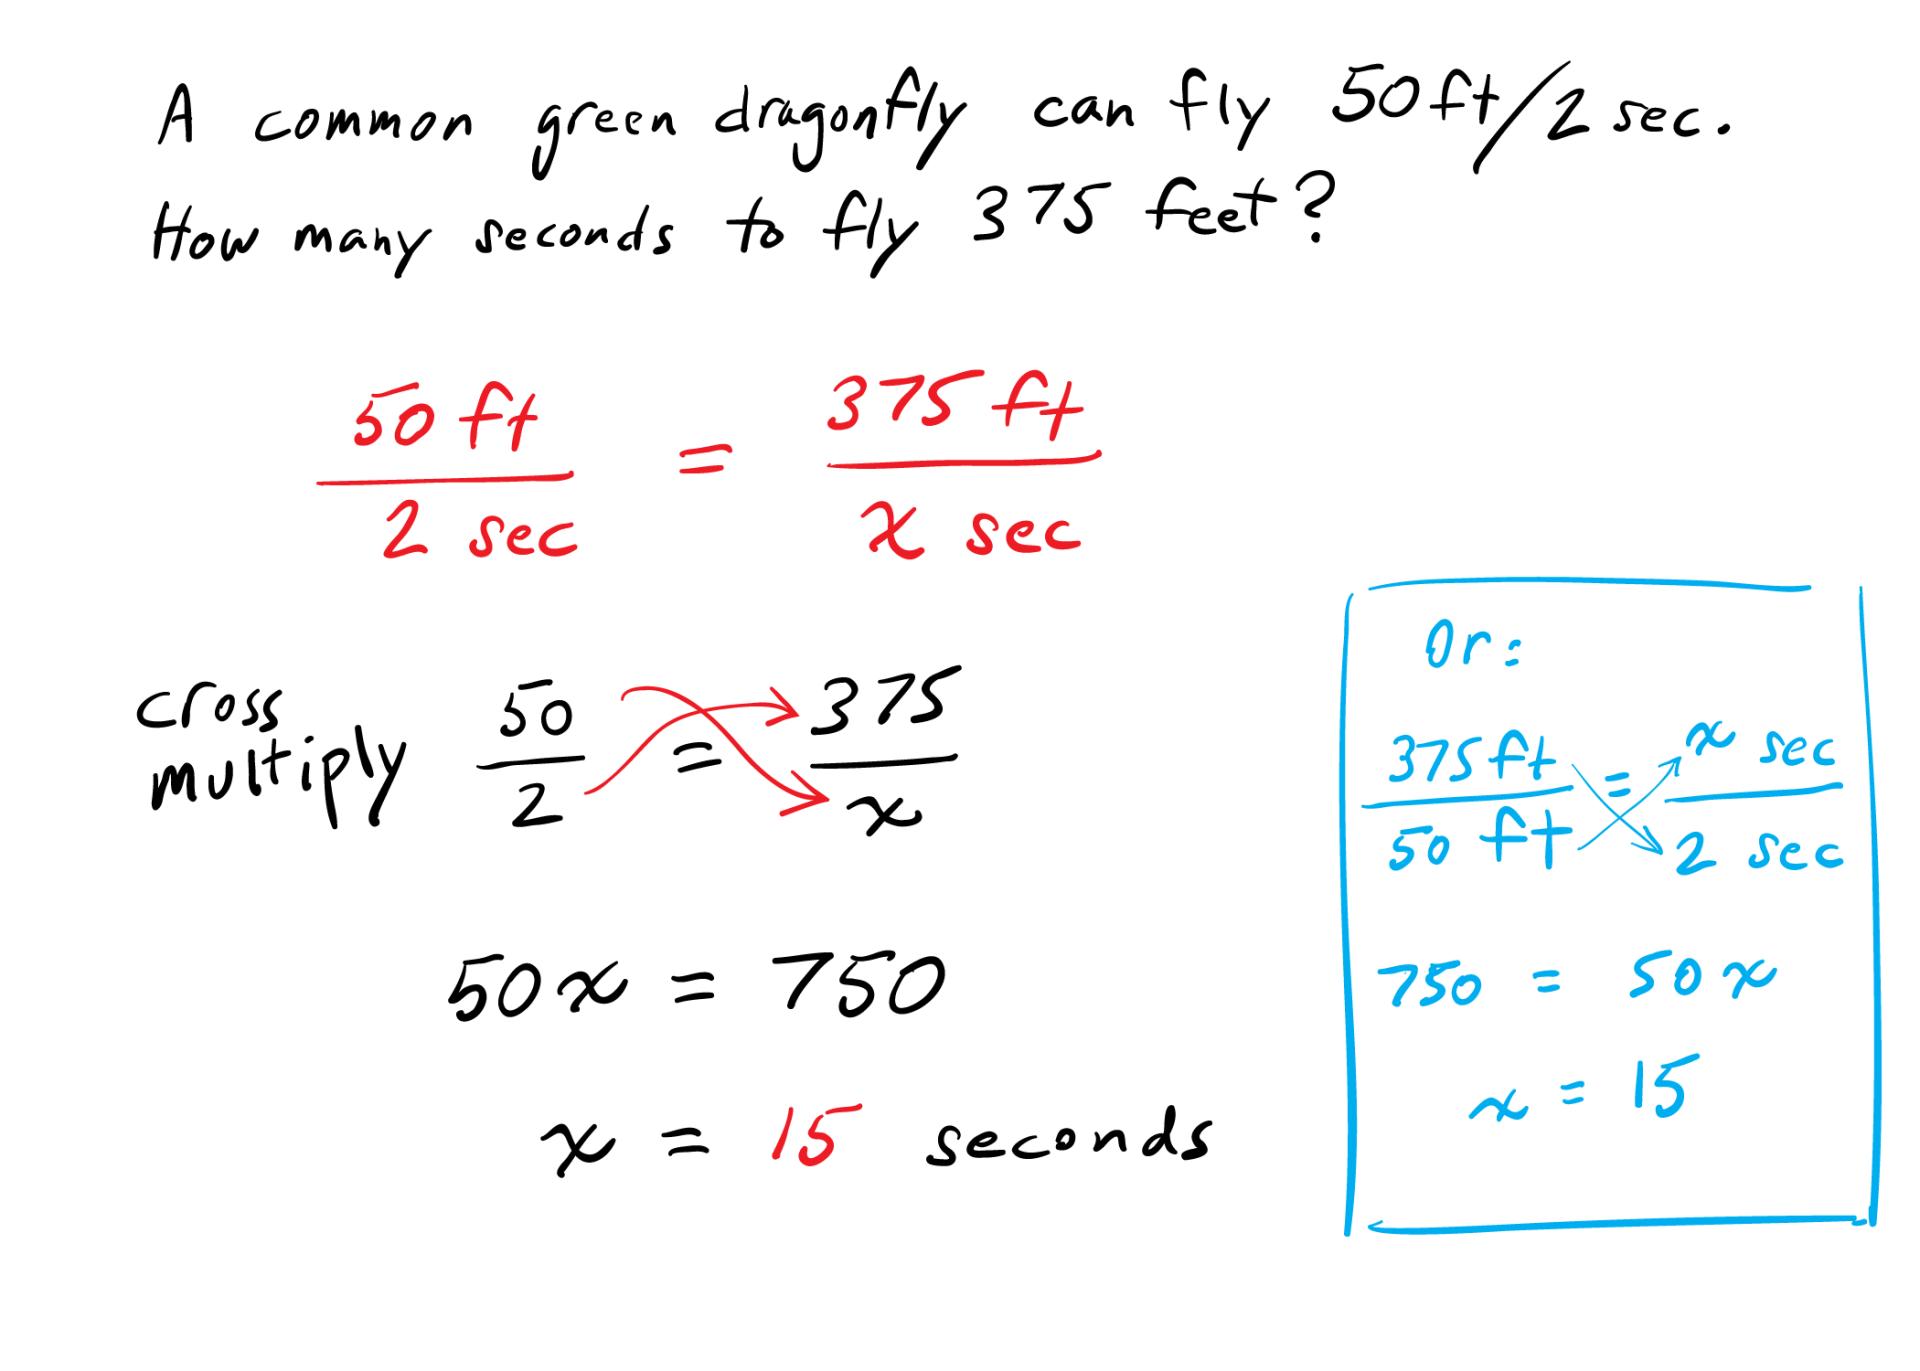 A common green dragonfly can fly 50ft/2 sec.
How many seconds to fly 375 feet?
50 ft
2 sec
=
375 ft
x sec
cross
multiply
50
2
=
375
x
50x = 750
x = 15 seconds
Or:
375 ft
50 ft
=
x sec
2 sec
750 = 50x
x = 15